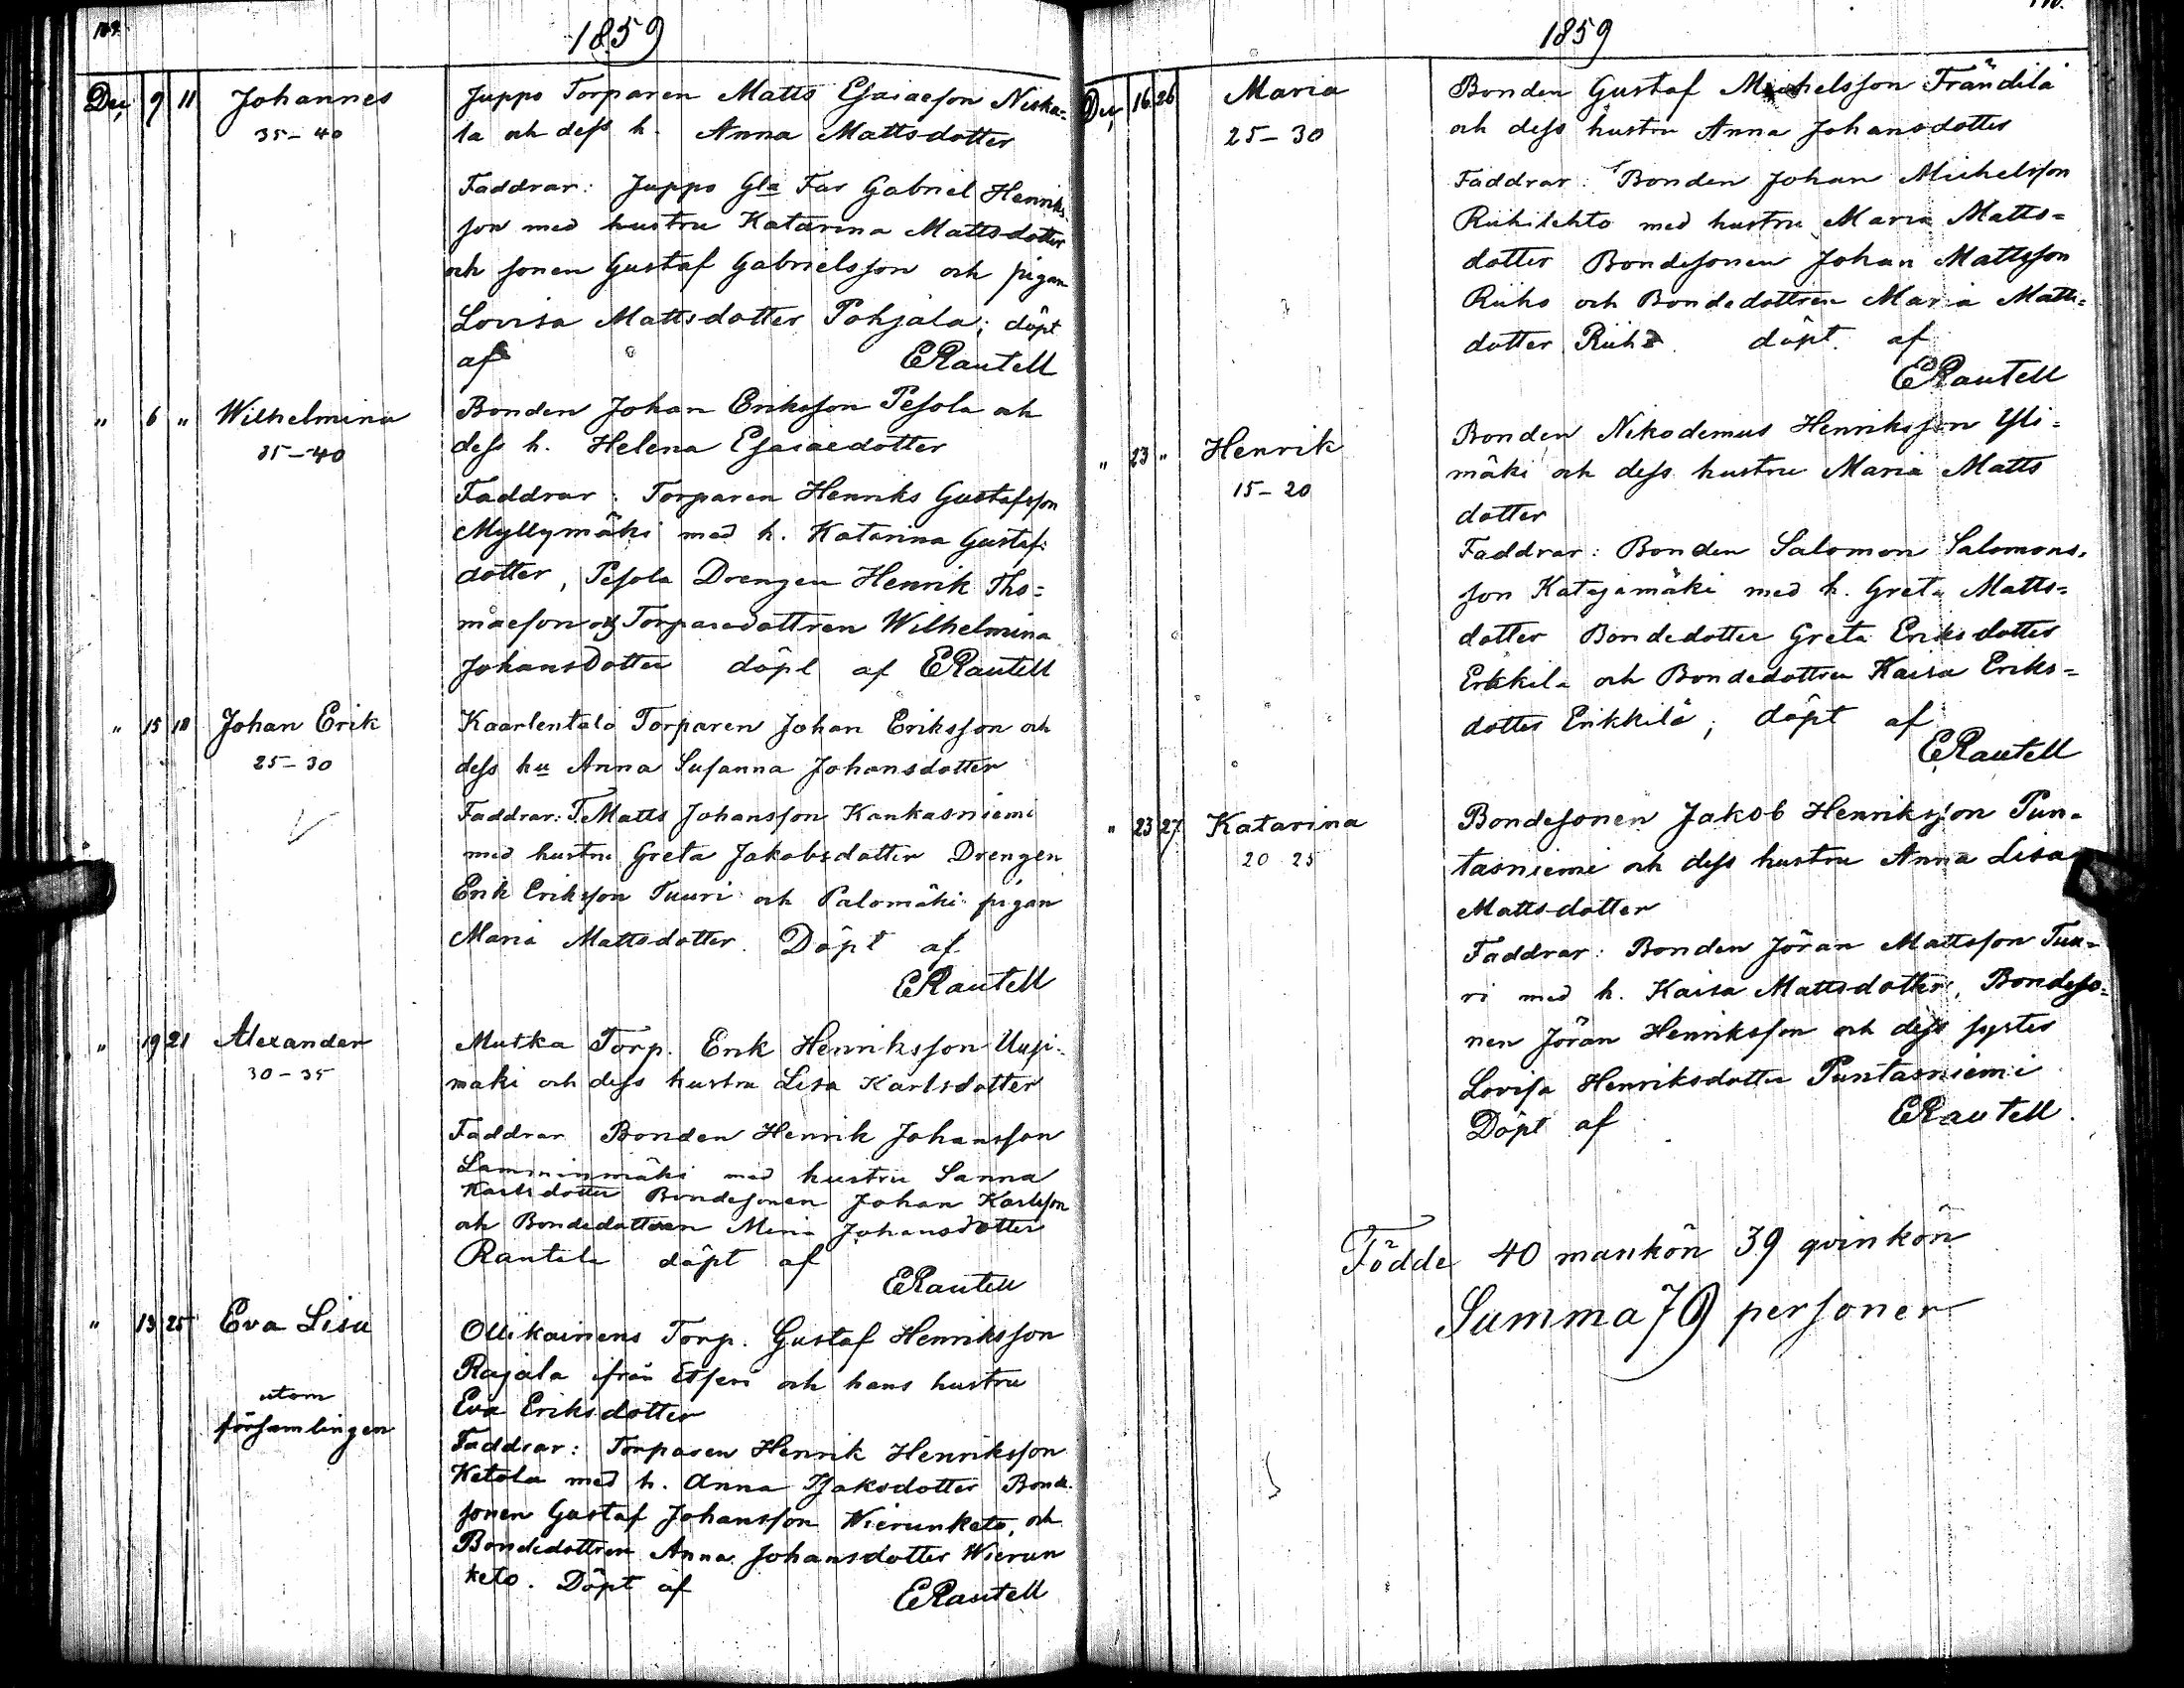 109.
1859
Dec 9 11 Johannes Juppo Torparen Matts Esaiaeson Niska=
35-40 la och dess h. Anna Mattsdotter
Faddrar: Juppo Gla Far Gabriel Henriks
son med hustru Katarina Mattsdotter
och sonen Gustaf Gabrielsson och pigan
Lovisa Mattsdotter Pohjala; döpt
af ERautell
" 6 " Wilhelmina Bonden Johan Eriksson Pesola och
35-40 dess h. Helena Esaiaedotter
Faddrar: Torparen Henriks Gustafsson
Myllymäki med h. Katarina Gustafs
dotter, Pesola Drengen Henrik Tho=
maeson och Torparedottren Wilhelmina
Johansdotter döpt af ERautell
" 15 18 Johan Erik Kaarlentalo Torparen Johan Eriksson och
25-30 dess hu Anna Susanna Johansdotter
Faddrar: T. Matts Johansson Kankasniemi
med hustru Greta Jakobsdotter Drengen
Erik Eriksson Tuuri och Palomäki pigan
Maria Mattsdotter. Döpt af
ERautell
" 19 21 Alexander Mutka Torp. Erik Henriksson Uusi-
30-35 mäki och dess hustru Lisa Karlsdotter
Faddrar Bonden Henrik Johansson
Lamminmäki med hustru Sanna
Karlsdotter Bondesonen Johan Karlsson
och Bondedottren Mina Johansdotter
Rantala döpt af
ERautell
" 13 25 Eva Lisa Ollikainens Torp. Gustaf Henriksson
Rajala ifrån Etseri och hans hustru
utom Eva Eriksdotter
församlingen
Faddrar: Torparen Henrik Henriksson
Ketola med h. Anna Isaksdotter Bonde
sonen Gustaf Johansson Wierunketo, och
Bondedottren Anna Johansdotter Wierun
keto. Döpt af ERautell
1859
Dec 16 26 Maria Bonden Gustaf Michelsson Frändilä
25-30 och dess hustru Anna Johansdotter
Faddrar: Bonden Johan Michelsson
Riihilehto med hustru Maria Matts=
dotter Bondesonen Johan Mattsson
Riiho och Bondedottren Maria Matts=
dotter Riiho döpt af
ERautell
" 23 " Henrik Bonden Nikodemus Henriksson Yli=
15-20 mäki och dess hustru Maria Matts
dotter
Faddrar: Bonden Salomon Salomons=
son Katajamäki med h. Greta Matts=
dotter Bondedotter Greta Eriksdotter
Erkkilä och Bondedottren Kaisa Eriks=
dotter Erkkilä; döpt af
ERautell
" 23 27 Katarina Bondesonen Jakob Henriksson Pun=
20 25 tasniemi och dess hustru Anna Lisa
Mattsdotter
Faddrar: Bonden Jöran Mattsson Tuu=
ri med h. Kaisa Mattsdotter, Bondeso=
nen Jöran Henriksson och dess syster
Lovisa Henriksdotter Puntasniemi
Döpt af ERautell.
Födde 40 mankön 39 qvinkön
Summa 79 personer